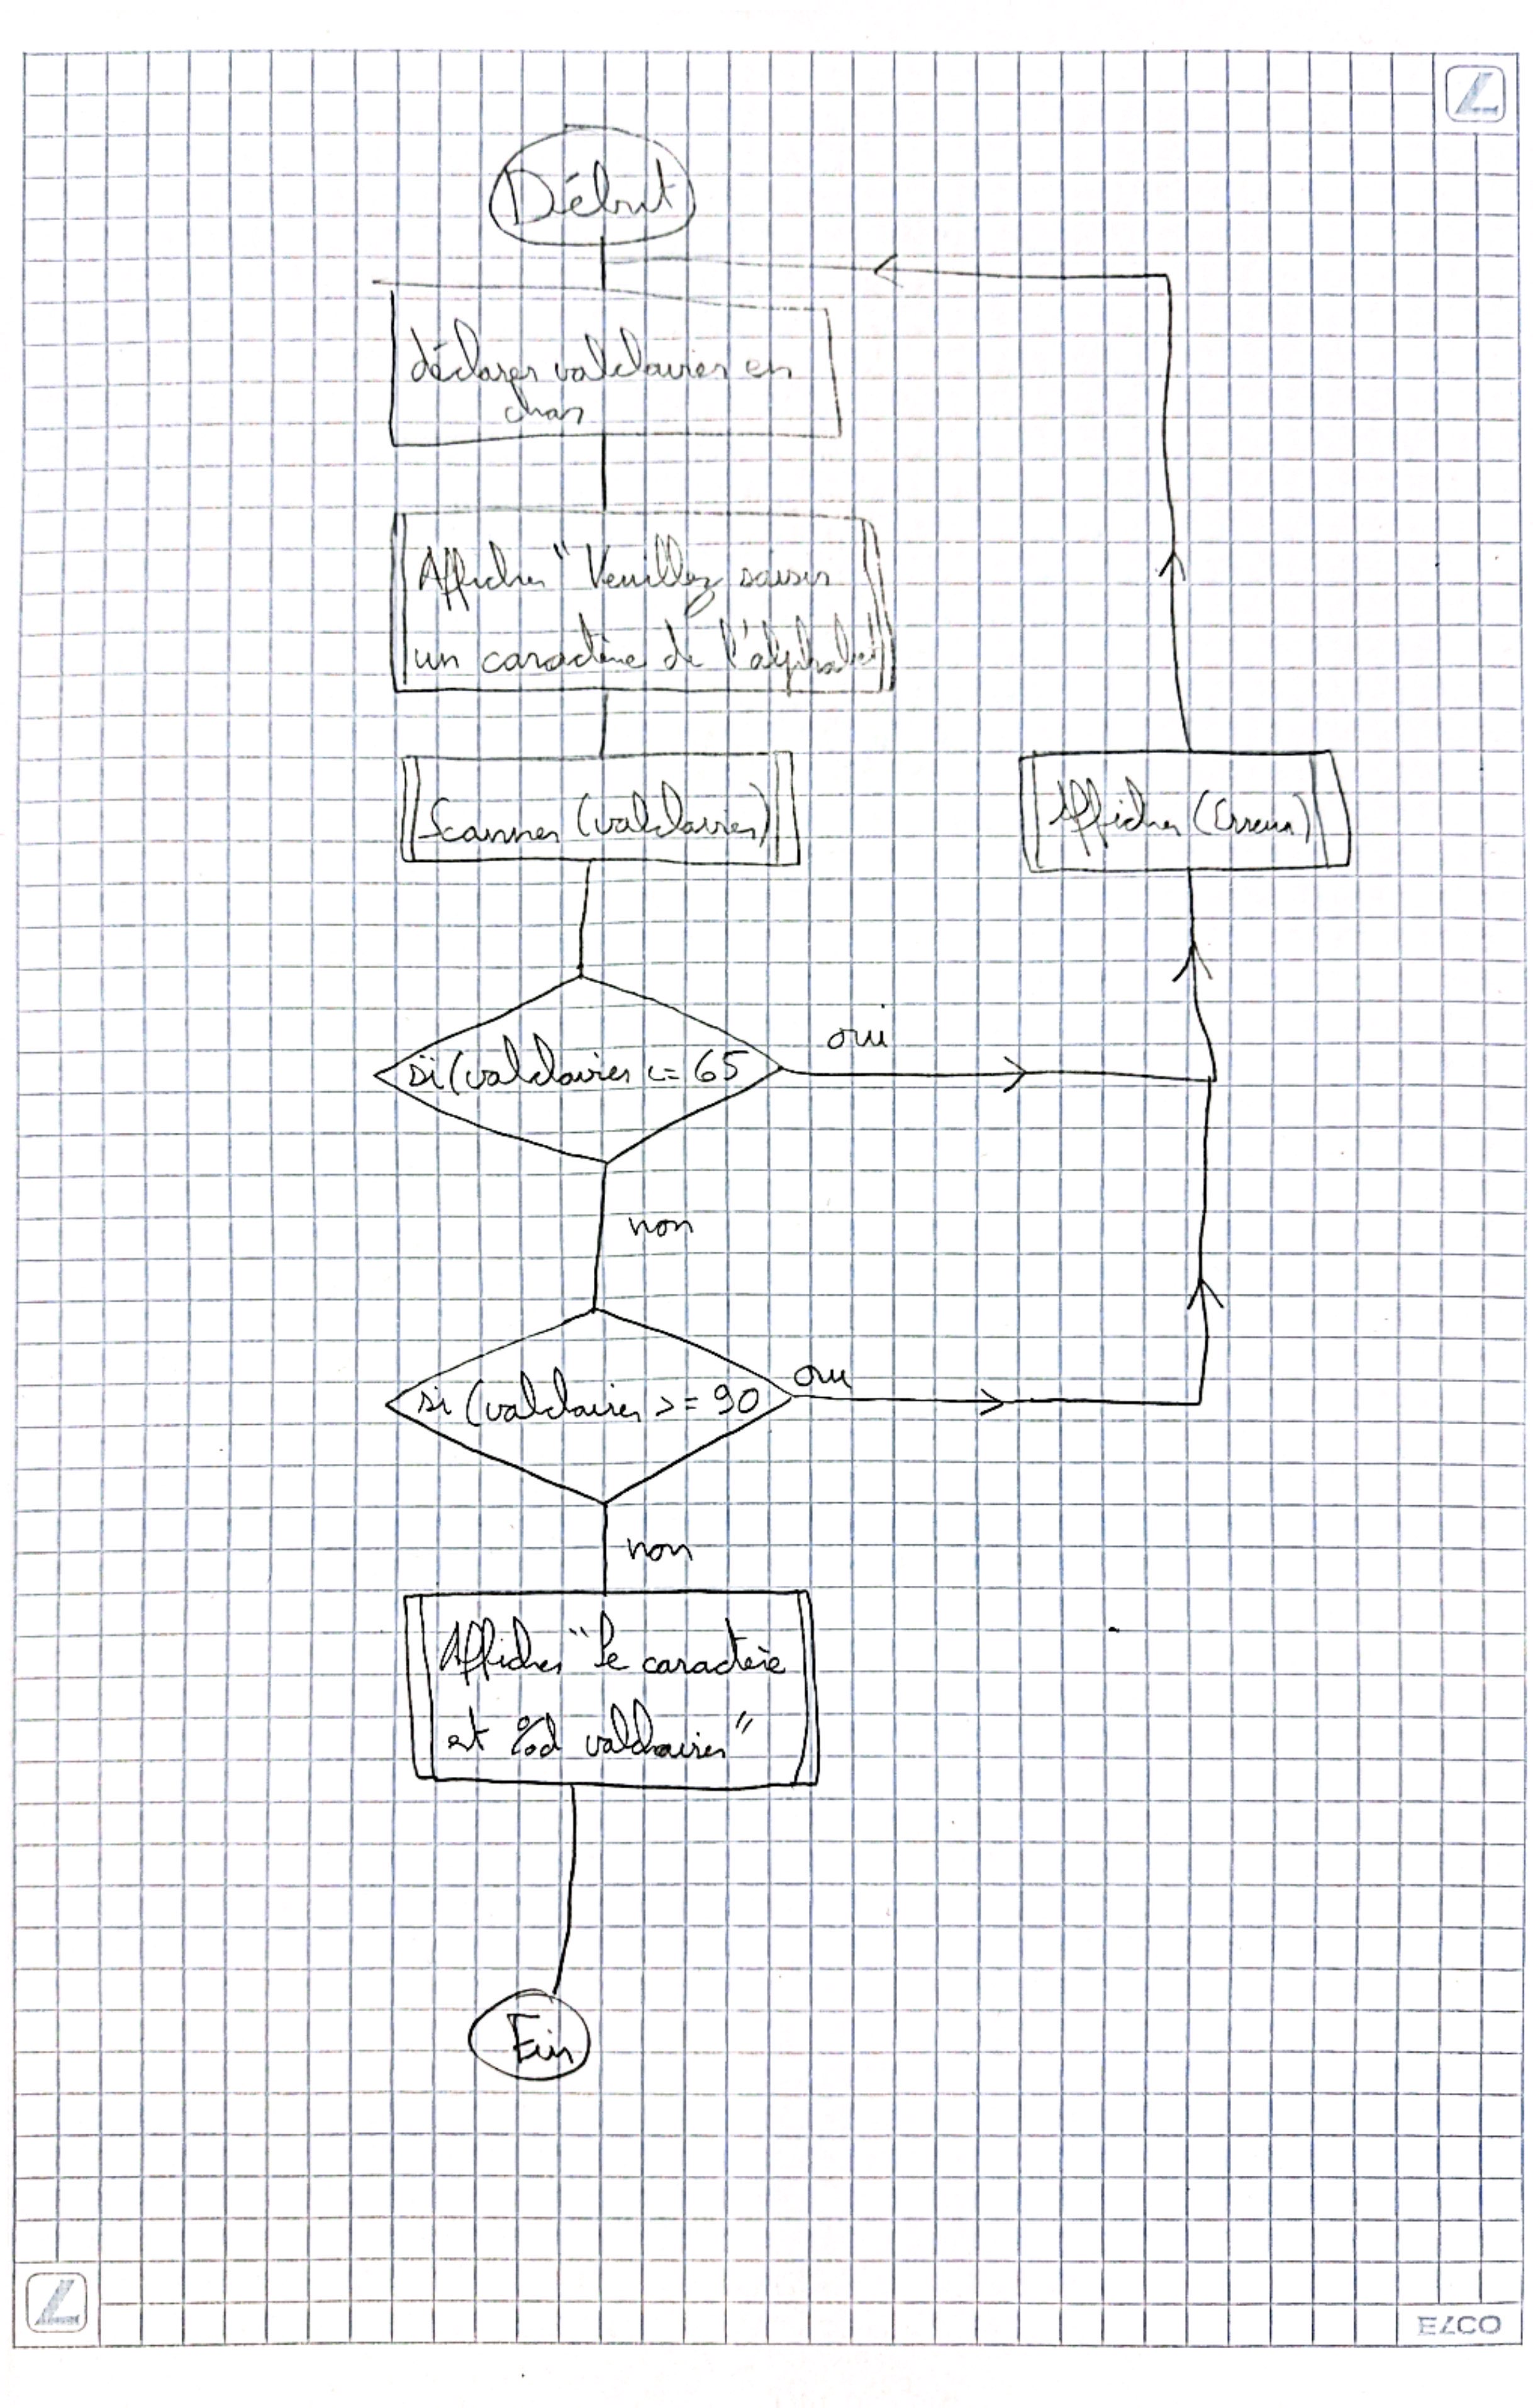 Début
déclarer valclavier en
char
Afficher "Veuillez saisir
un caractère de l'alphabet"
Scanner (valclavier)
Afficher (Erreur)
si (valclavier <= 65
oui
non
si (valclavier >= 90
oui
non
Afficher "le caractère
est %d valclavier"
Fin
ELCO